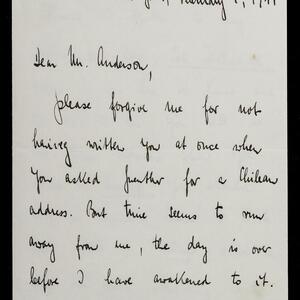 Dear Mr. Anderson,
please forgive me for not
having written you at once when
you asked further for a Chilean
address. But time seems to run
away from me, the day is over
before I have awakened to it.